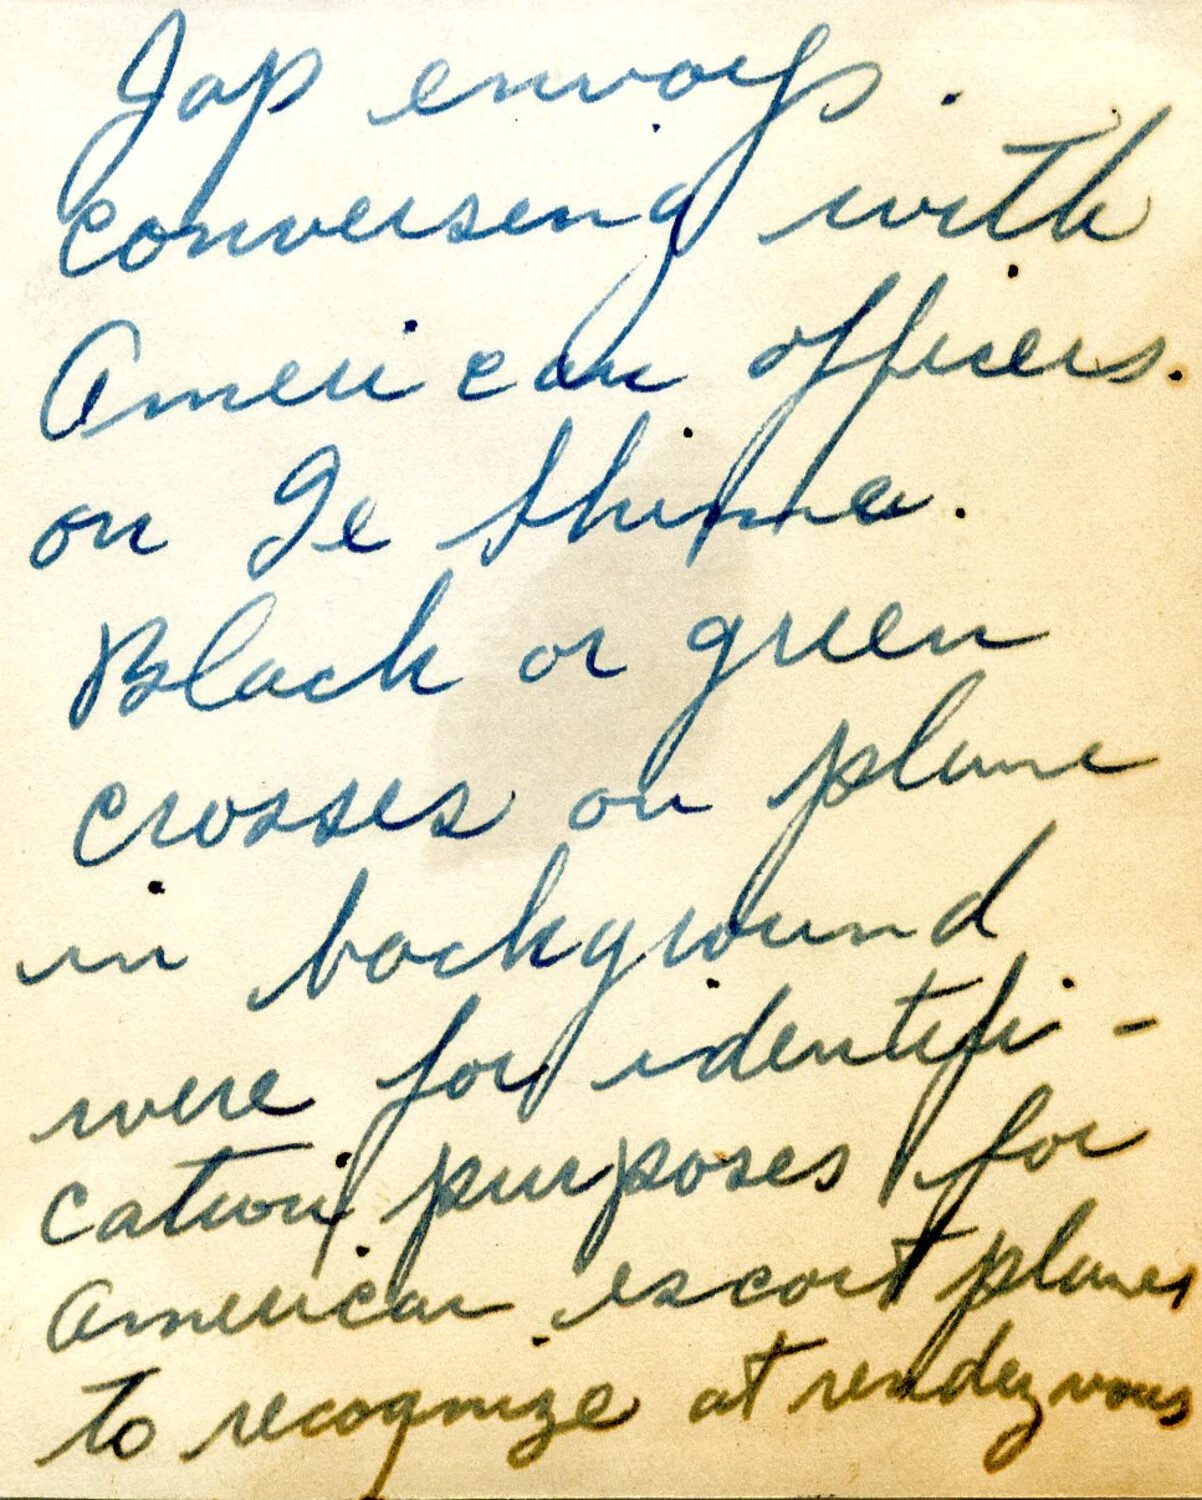 Jap envoys
conversing with
American officers.
on Ie Shima.
Black or green
crosses on plane
in background
were for identifi-
cation purposes for
American escort planes
to recognize at rendezvous